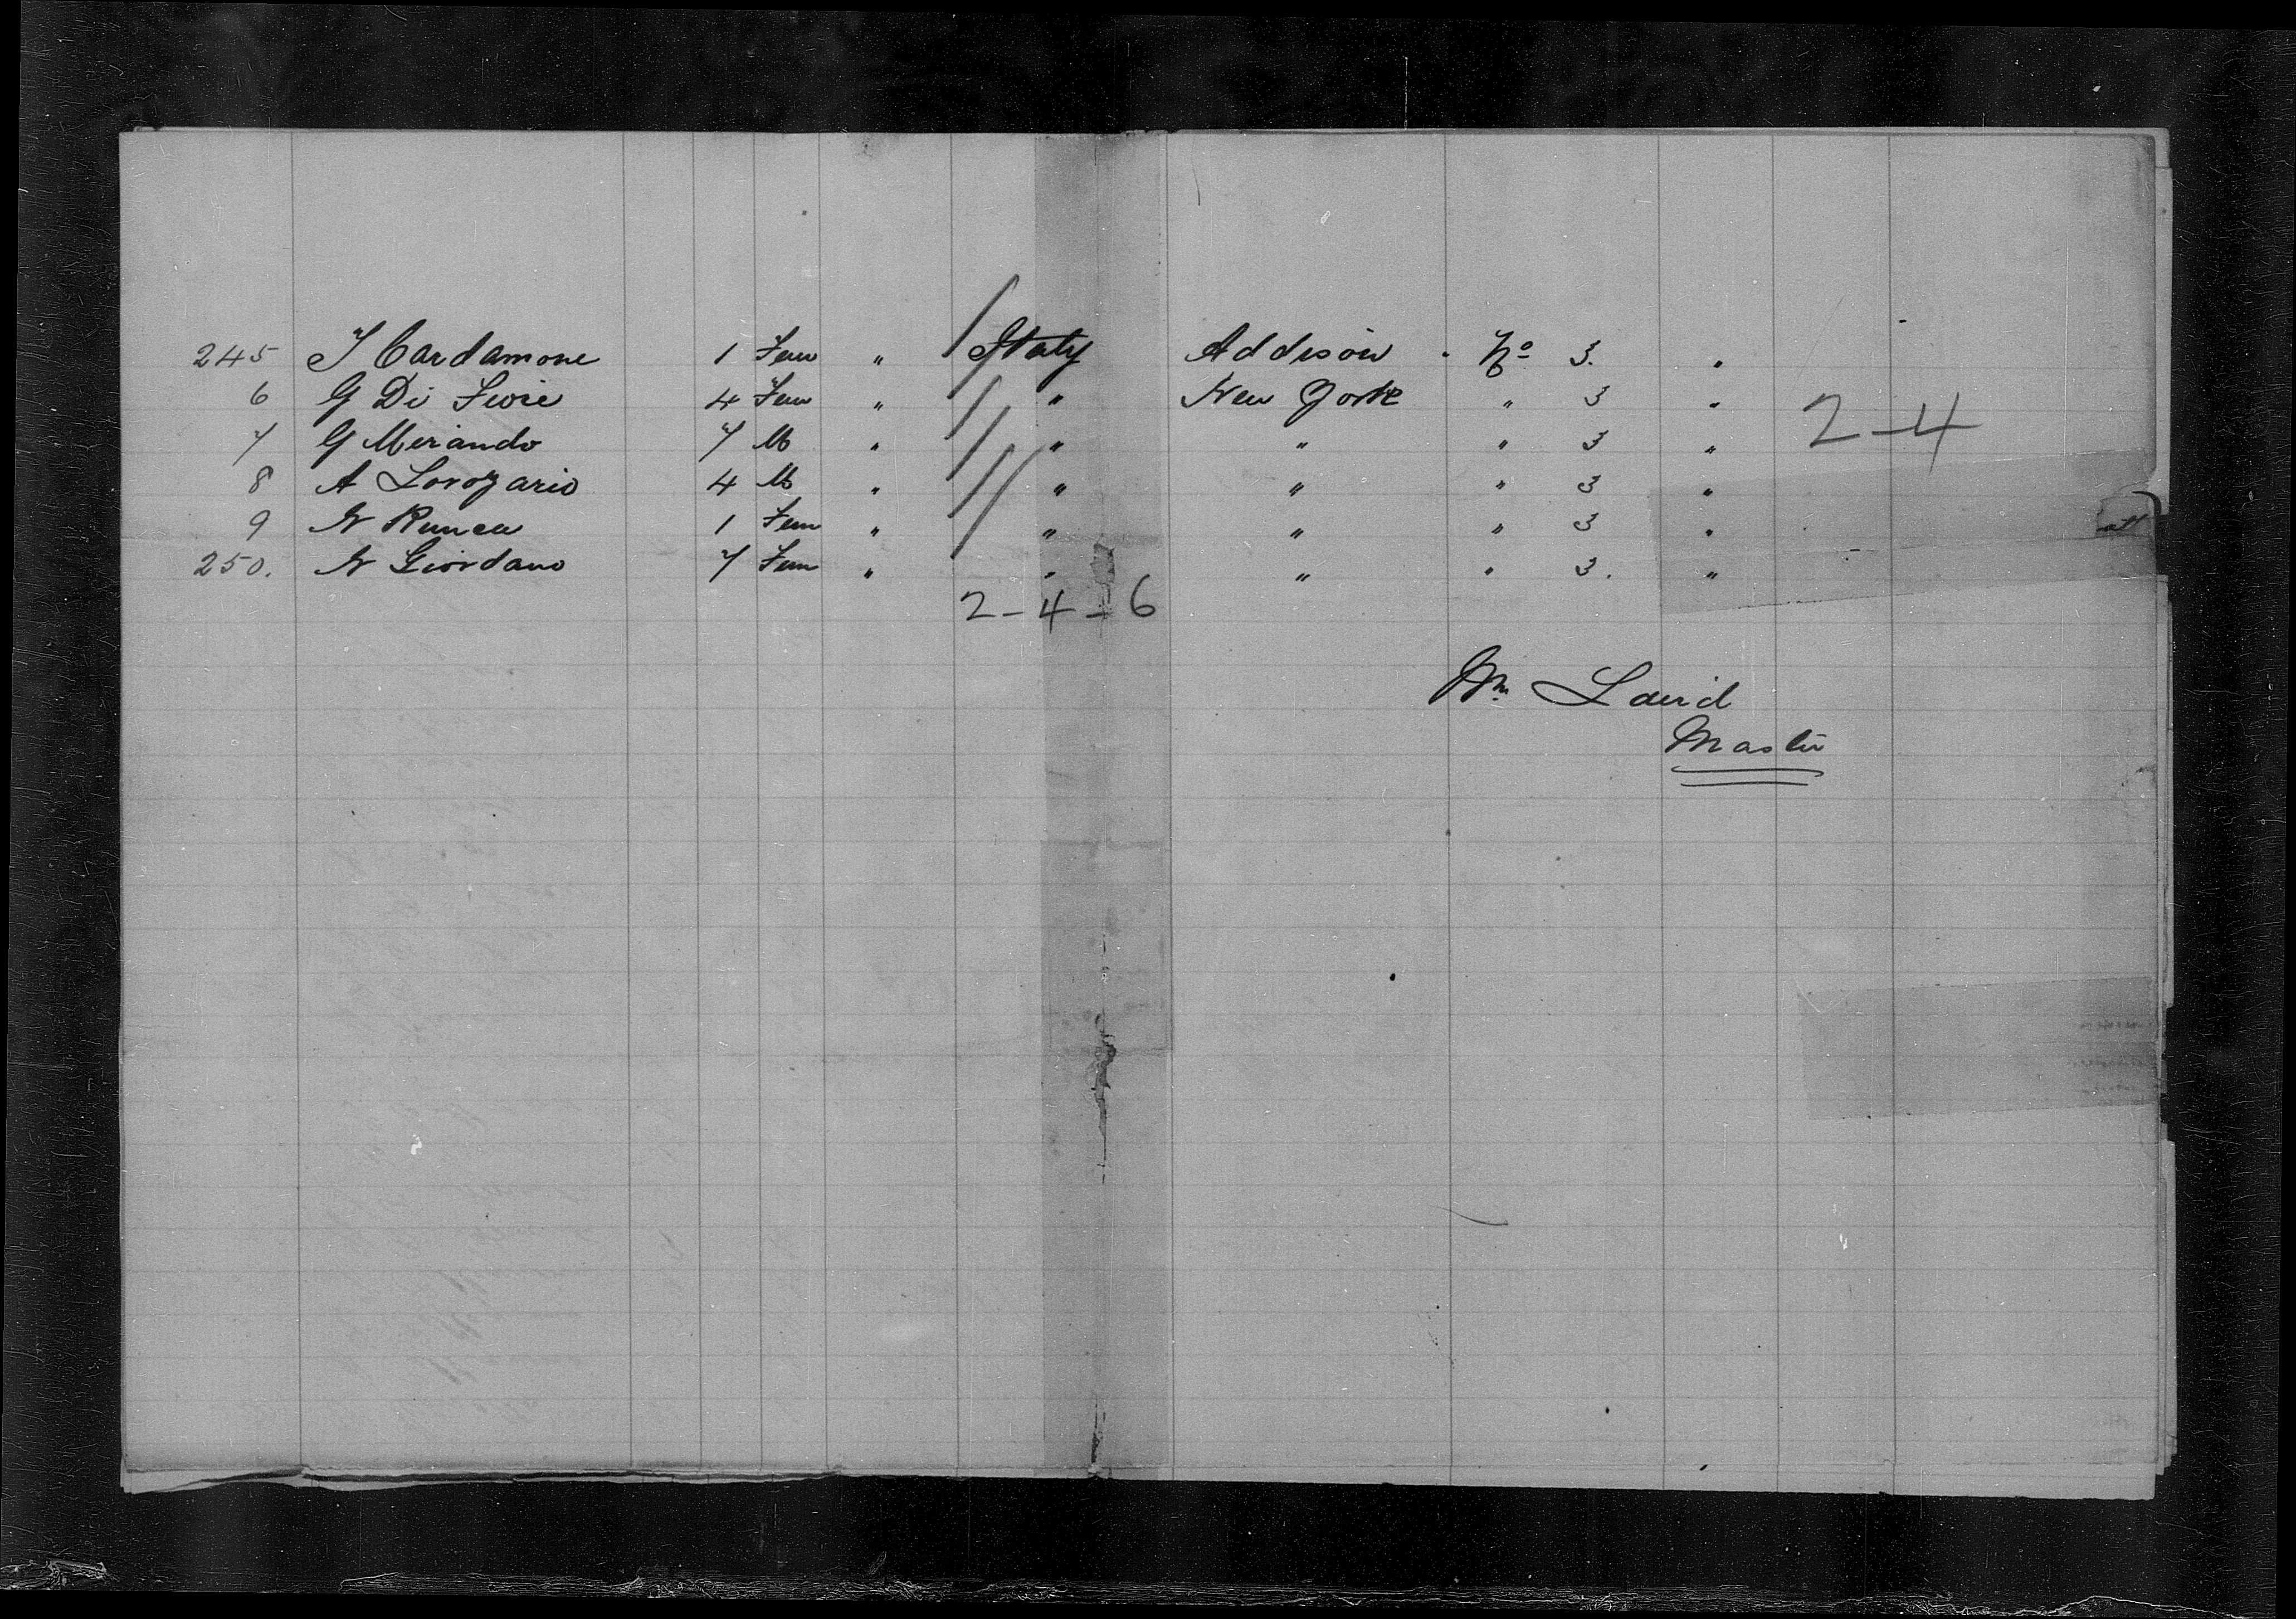 245 T Cardamone 1 Fem " Italy Addison . No 3. "
6 G Di Fiore 4 Fem " " New York " 3 "
7 G Merando 7 M " " " " 3 " 2-4
8 A Lorozario 4 M " " " " 3 "
9 N Runca 1 Fem " " " " 3 "
250. N Giordano 7 Fem " " " " 3. "
2-4-6
Wm Laird
Master